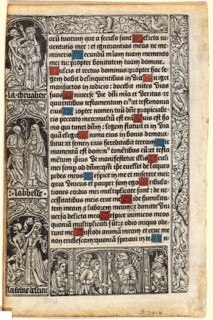 arū tuarum que a seculo sunt Delicta iu
uentutis mee: et ignorantias meas ne me
mineris Secundū miam tuam memento
mei tu: propter bonitatem tuam domine
Dulcis et rectus dominus: propter hoc le
gem dabit delinquentibus in via Diriget
mansuetos in iudicio: docebit mites vias
suas Uniuerse vie dñi mia et veritas: re
quirentibus testamentum eiꝰ et testimonia
eius Propter nomen tuū dñe propiciabe
ris peccato meo: multū est eni Quis est ho
mo qui timet dñm: legem statuit ei in via
quā elegit Anima eius in bonis demora
bitur: et semen eius hereditabit terram Fir
mamentū est dominꝰ timētibus eū: et testa
mētum ipsius vt manifestetur illis Oculi
mei semp ad dñm: qm ipse euellet de laqueo
pedes meos Respice in me et miserere mei:
quia vnicus et pauper sum ego Tribula
tiones cordis mei multiplicate sunt: de ne
cessitatibus meis erue me Vide humilita
tem meam et laborem meum: et dimitte vni
uersa delicta mea Respice inimicos meos
quoniā multiplicati sūt: et odio iniquo ode
runt me Custodi animā meam et erue me
non erubescam: quoniā speraui in te In
labbesse